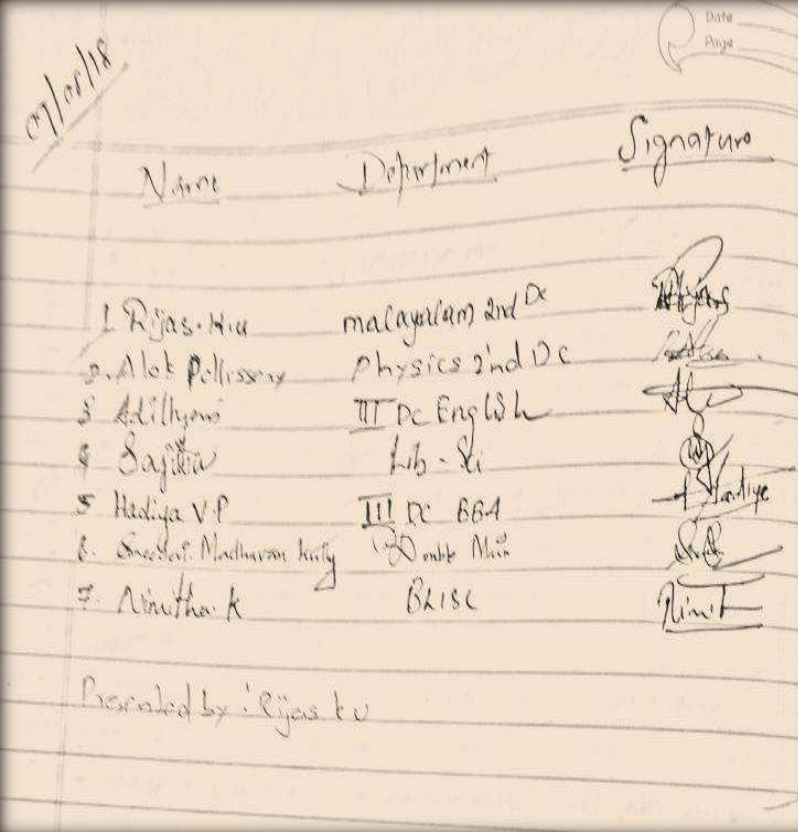 Date
Page
07/08/18
Name Department Signature
1. Rijas. K.u malayalam 2nd Dc
2. Alok Pellissery Physics 2nd DC
3 Adithyan III DC English
4 Sajitha Lib - Sci
5 Hadiya V.P III DC BBA Hadiya
6. Madhavan kutty Double Main
7. Nimitha. K BLISC Nimit
Presented by : Rijas k u